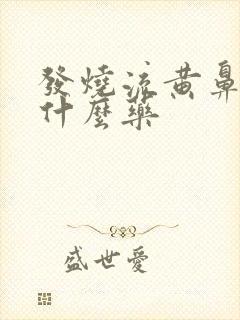 發燒流黃鼻
什麼藥
盛世愛